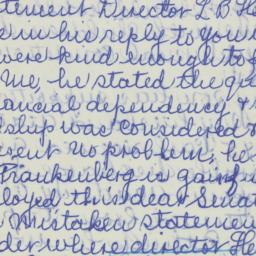 tement Director L B He
s in his reply to you w
were kind enough to f
me, he stated the qu
ancial dependency &
dship was considered
sent no problem, he
Frankenberg is gainf
loyed this dear Senat
a Mistaken statemen
der where director He